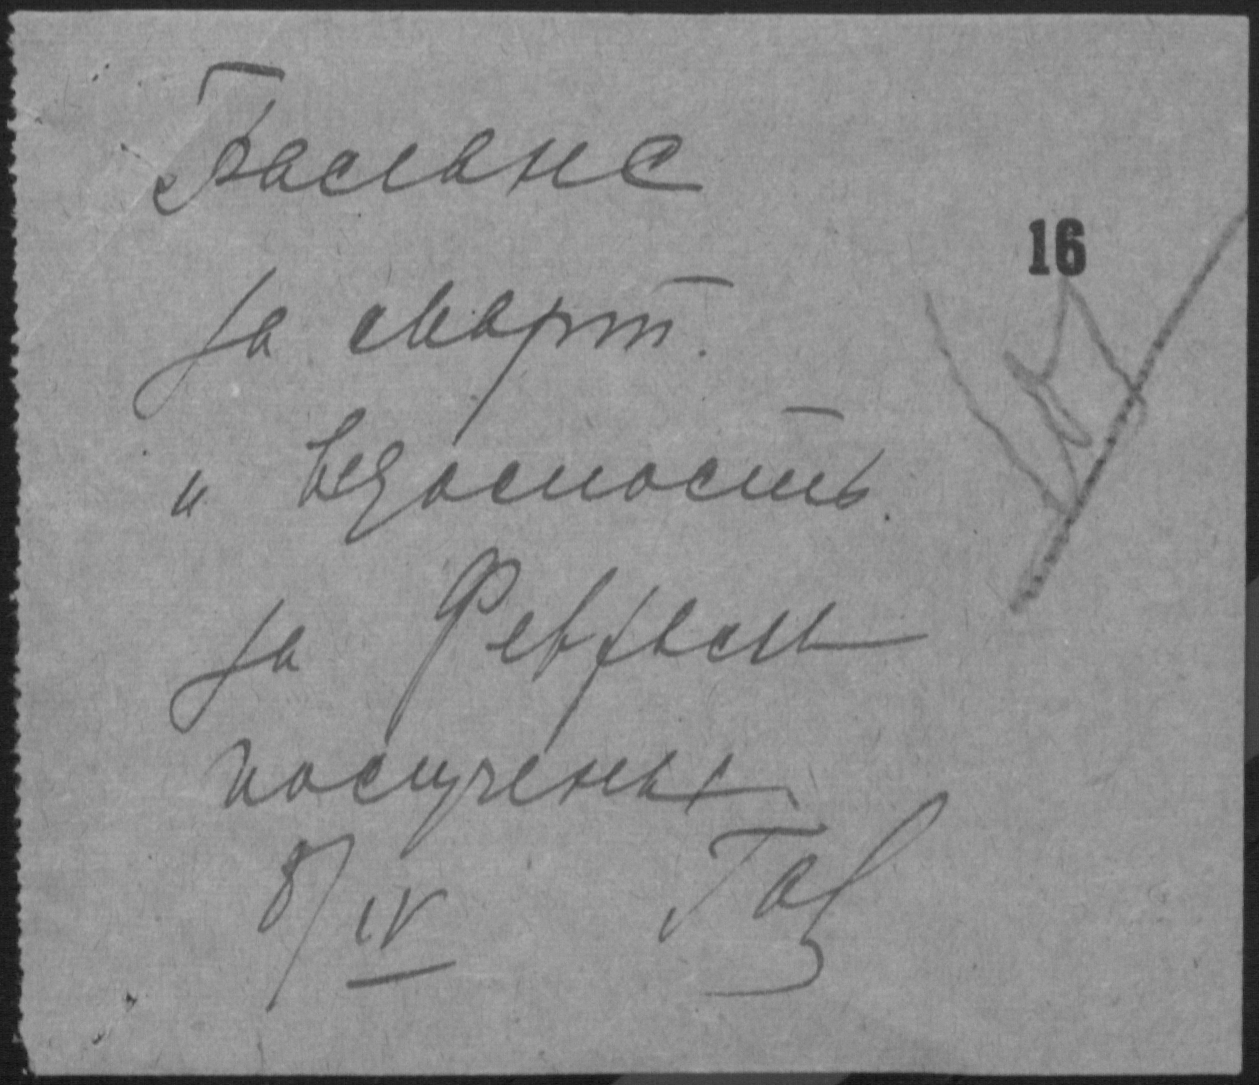 Баланс
16
за март.
и ведомость
за Февраль
получены
8/IV